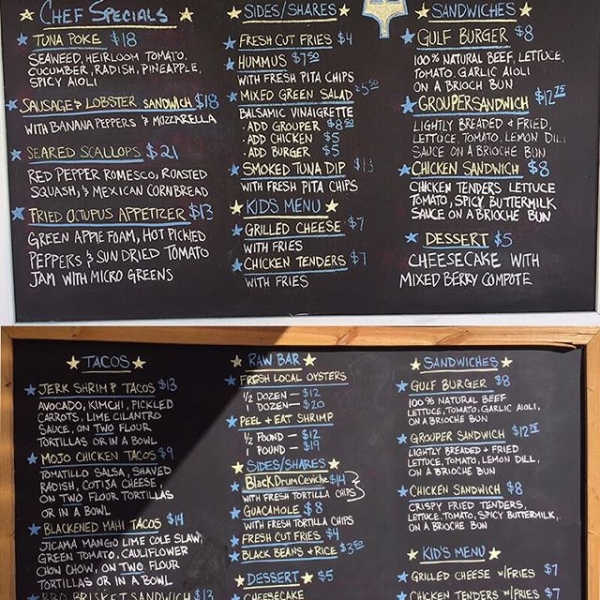 CHEF SPECIALS
TUNA POKE $18
SEAWEED, HEIRLOOM TOMATO,
CUCUMBER, RADISH, PINEAPPLE,
SPICY AIOLI
SAUSAGE & LOBSTER SANDWICH $18
WITH BANANA PEPPERS & MOZZARELLA
SEARED SCALLOPS $21
RED PEPPER ROMESCO, ROASTED
SQUASH, & MEXICAN CORNBREAD
FRIED OCTUPUS APPETIZER $13
GREEN APPLE FOAM, HOT PICKLED
PEPPERS & SUN DRIED TOMATO
JAM WITH MICRO GREENS
SIDES/SHARES
FRESH CUT FRIES $4
HUMMUS $7.50
WITH FRESH PITA CHIPS
MIXED GREEN SALAD $5.50
BALSAMIC VINAIGRETTE
- ADD GROUPER $8.25
- ADD CHICKEN $5
- ADD BURGER $5
SMOKED TUNA DIP $13
WITH FRESH PITA CHIPS
KIDS MENU
GRILLED CHEESE $7
WITH FRIES
CHICKEN TENDERS $7
WITH FRIES
SANDWICHES
GULF BURGER $8
100% NATURAL BEEF, LETTUCE,
TOMATO, GARLIC AIOLI
ON A BRIOCH BUN
GROUPER SANDWICH $12.75
LIGHTLY BREADED & FRIED,
LETTUCE, TOMATO, LEMON DILL
SAUCE ON A BRIOCHE BUN
CHICKEN SANDWICH $8
CHICKEN TENDERS LETTUCE
TOMATO, SPICY BUTTERMILK
SAUCE ON A BRIOCHE BUN
DESSERT $5
CHEESECAKE WITH
MIXED BERRY COMPOTE
TACOS
JERK SHRIMP TACOS $13
AVOCADO, KIMCHI, PICKLED
CARROTS, LIME CILANTRO
SAUCE, ON TWO FLOUR
TORTILLAS OR IN A BOWL
MOJO CHICKEN TACOS $9
TOMATILLO SALSA, SHAVED
RADISH, COTIJA CHEESE,
ON TWO FLOUR TORTILLAS
OR IN A BOWL
BLACKENED MAHI TACOS $14
JICAMA MANGO LIME COLE SLAW,
GREEN TOMATO, CAULIFLOWER
CHOW CHOW, ON TWO FLOUR
TORTILLAS OR IN A BOWL
BBQ BRISKET SANDWICH $13
RAW BAR
FRESH LOCAL OYSTERS
½ DOZEN — $12
1 DOZEN — $20
PEEL + EAT SHRIMP
½ POUND — $12
1 POUND — $19
SIDES/SHARES
Black Drum Ceviche $14
WITH FRESH TORTILLA CHIPS
GUACAMOLE $8
WITH FRESH TORTILLA CHIPS
FRESH CUT FRIES $4
BLACK BEANS + RICE $3.50
DESSERT $5
CHEESECAKE
SANDWICHES
GULF BURGER $8
100% NATURAL BEEF
LETTUCE, TOMATO, GARLIC AIOLI,
ON A BRIOCHE BUN
GROUPER SANDWICH $12.75
LIGHTLY BREADED + FRIED
LETTUCE, TOMATO, LEMON DILL,
ON A BRIOCHE BUN
CHICKEN SANDWICH $8
CRISPY FRIED TENDERS,
LETTUCE, TOMATO, SPICY BUTTERMILK,
ON A BRIOCHE BUN
KID'S MENU
GRILLED CHEESE W/FRIES $7
CHICKEN TENDERS W/FRIES $7